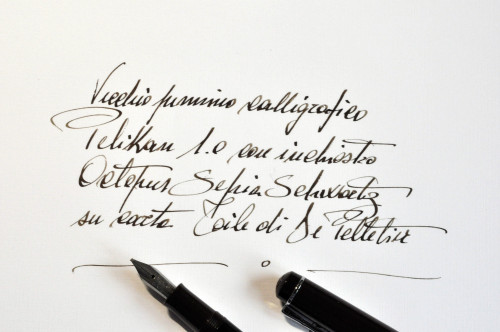 Vecchio pennino calligrafico
Pelikan 1.0 con inchiostro
Octopus Sepia Schwartz
su carta Toile di De Pelletier